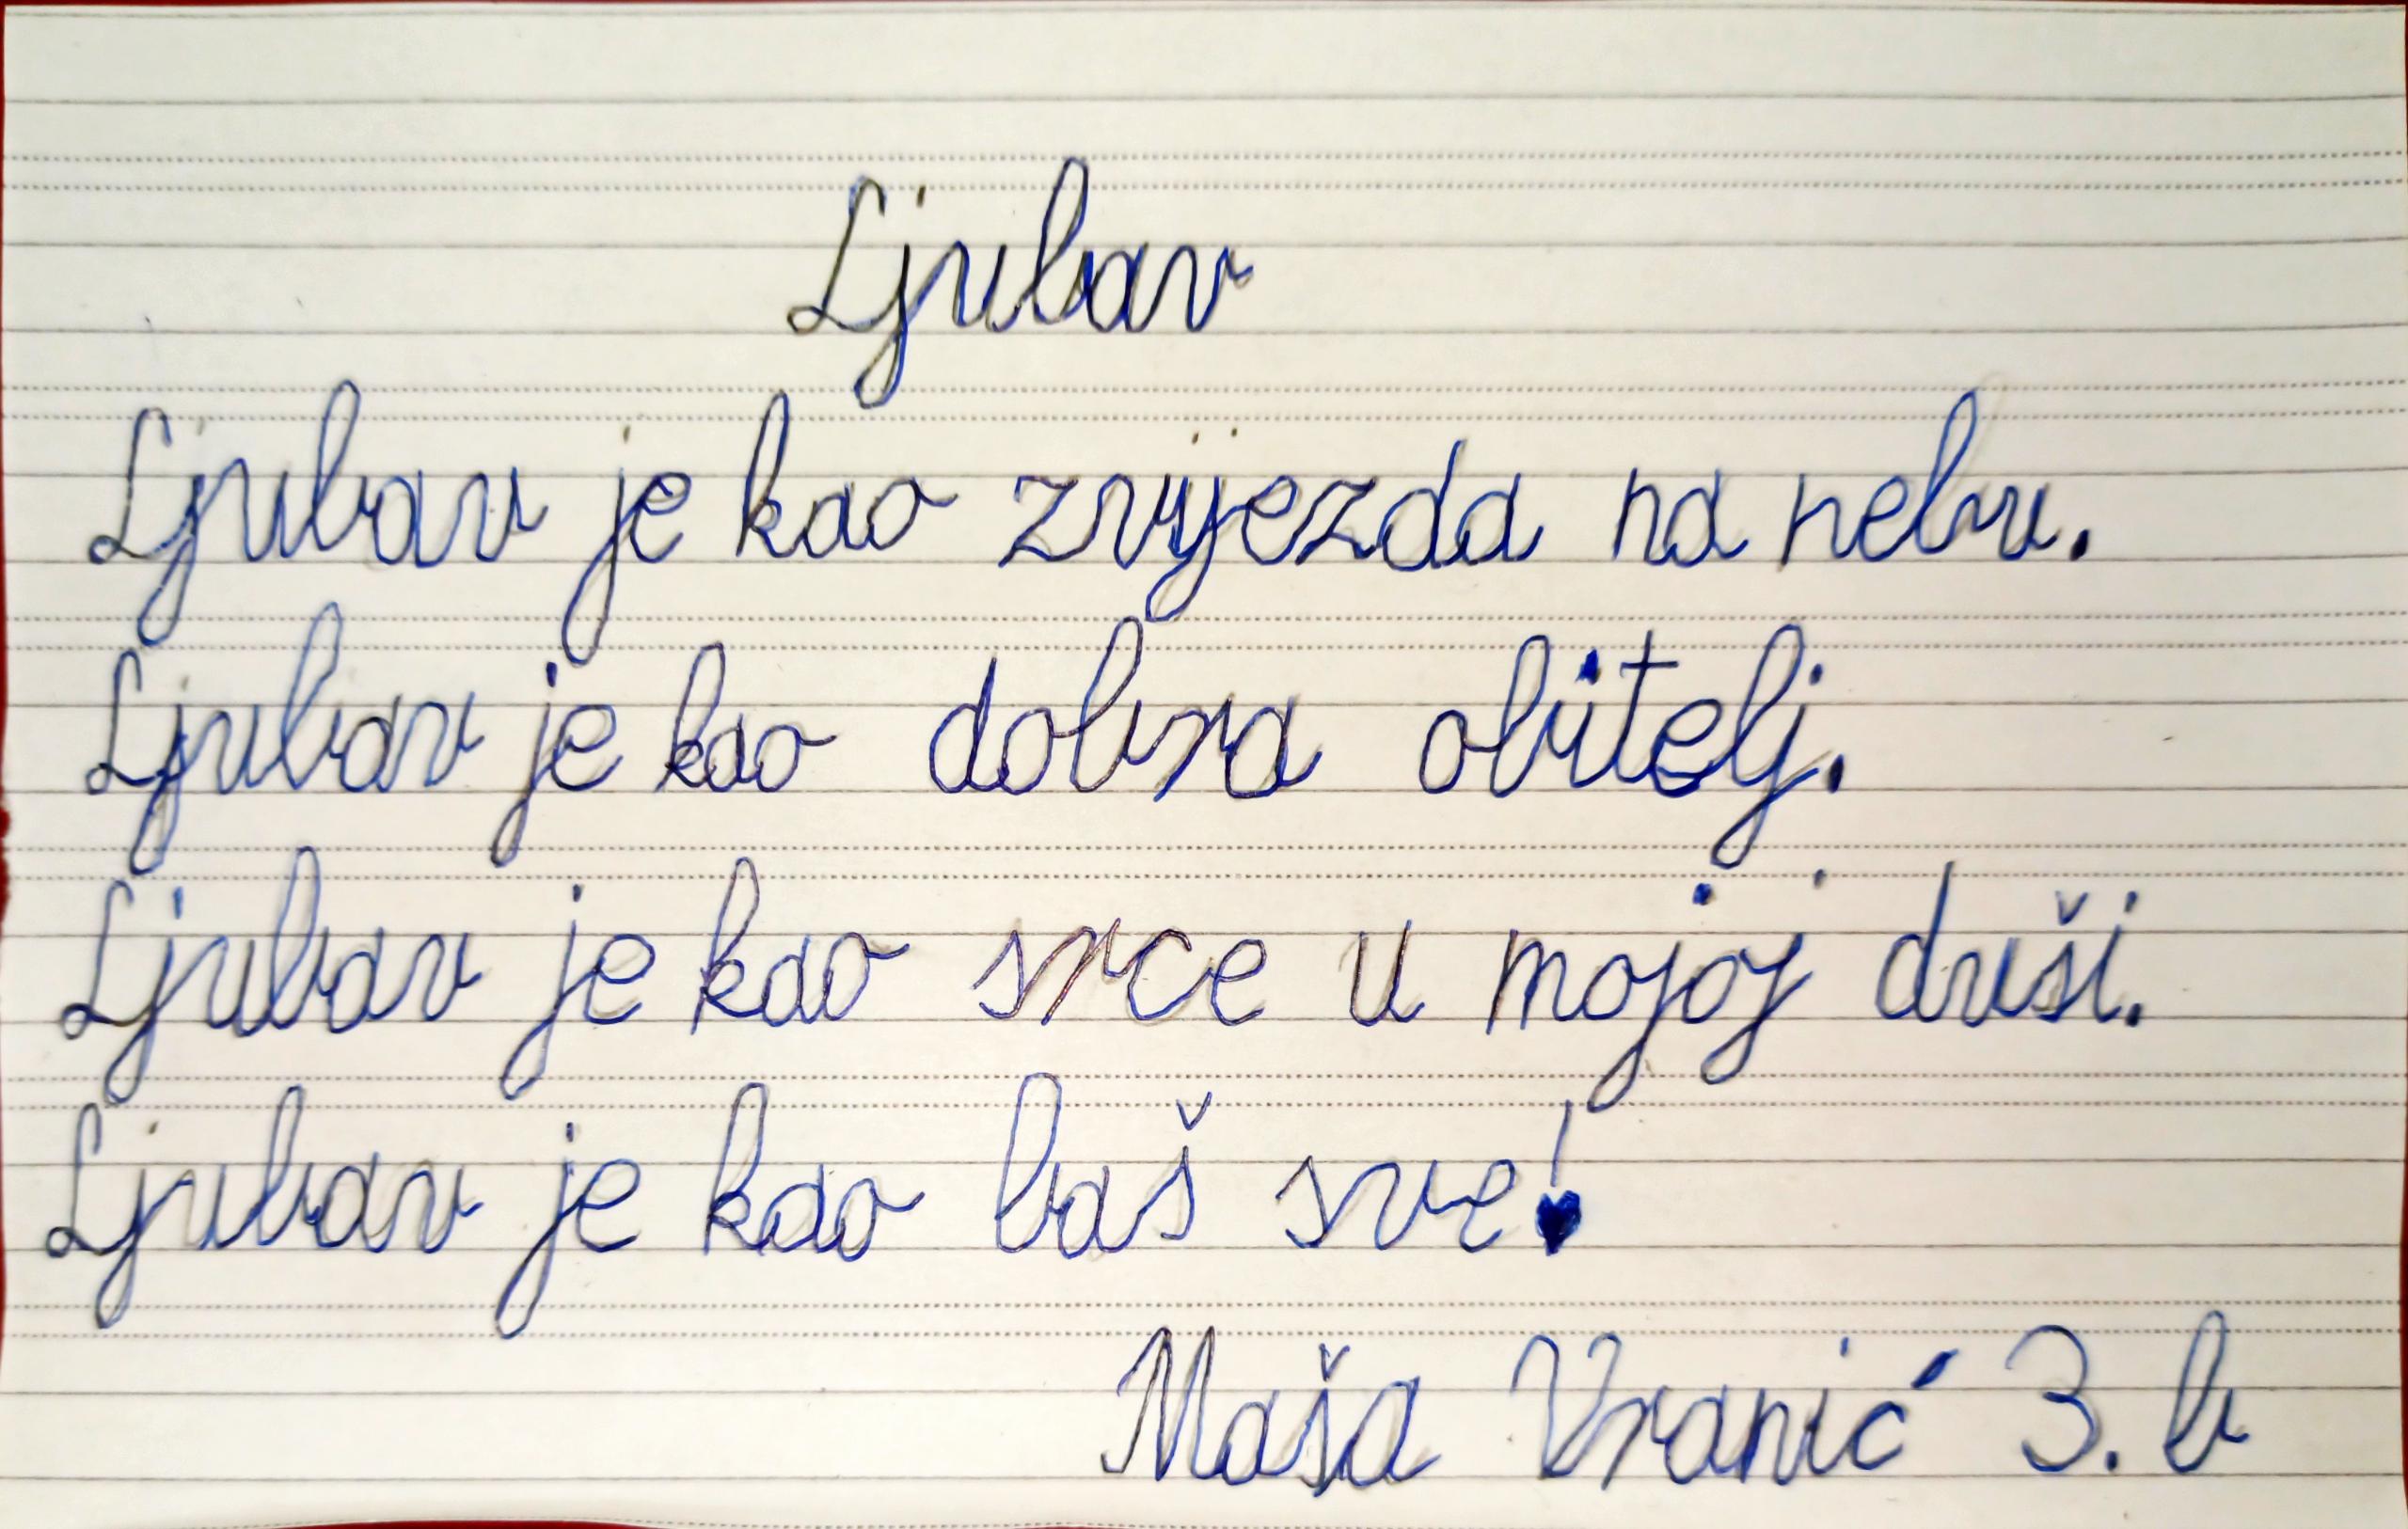 Ljubav
Ljubav je kao zvijezda na nebu.
Ljubav je kao dobra obitelj.
Ljubav je kao srce u mojoj duši.
Ljubav je kao baš sve!
Maša Vranić 3. b